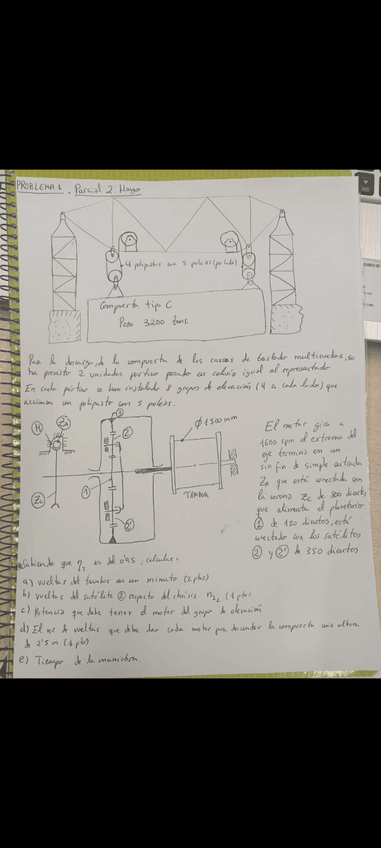 PROBLEMA 1. Parcial 2. Mayo
4 polipastos con 5 poleas (por lado)
Compuerta tipo C
Peso 3200 tons.
Para la descarga de la compuerta de los carros de traslado multiruedas, se
ha previsto 2 unidades pórtico igual al representado
En cada pórtico se han instalado 8 grupos de elevación (4 a cada lado) que
accionan un polipasto con 5 poleas.
El motor gira a
1500 rpm el extremo del
eje termina en un
sin fin de simple entrada
Zn que está conectado con
la corona Zc de 300 dientes
que alimenta el planetario
① de 150 dientes, está
conectado con los satélites
② y ②' de 350 dientes
M
Zn
Zc
③
②
②
①
②'
Φ 1500 mm
TAMBOR
Sabiendo que η es del 0'95, calcular:
a) vueltas del tambor en un minuto (2 ptos)
b) Vueltas del satélite ② respecto del chasis n2c (1 pto)
c) Potencia que debe tener el motor del grupo de elevación
d) El nº de vueltas que debe dar cada motor para descender la compuerta una altura
de 2'5 m (1 pto)
e) Tiempo de la maniobra